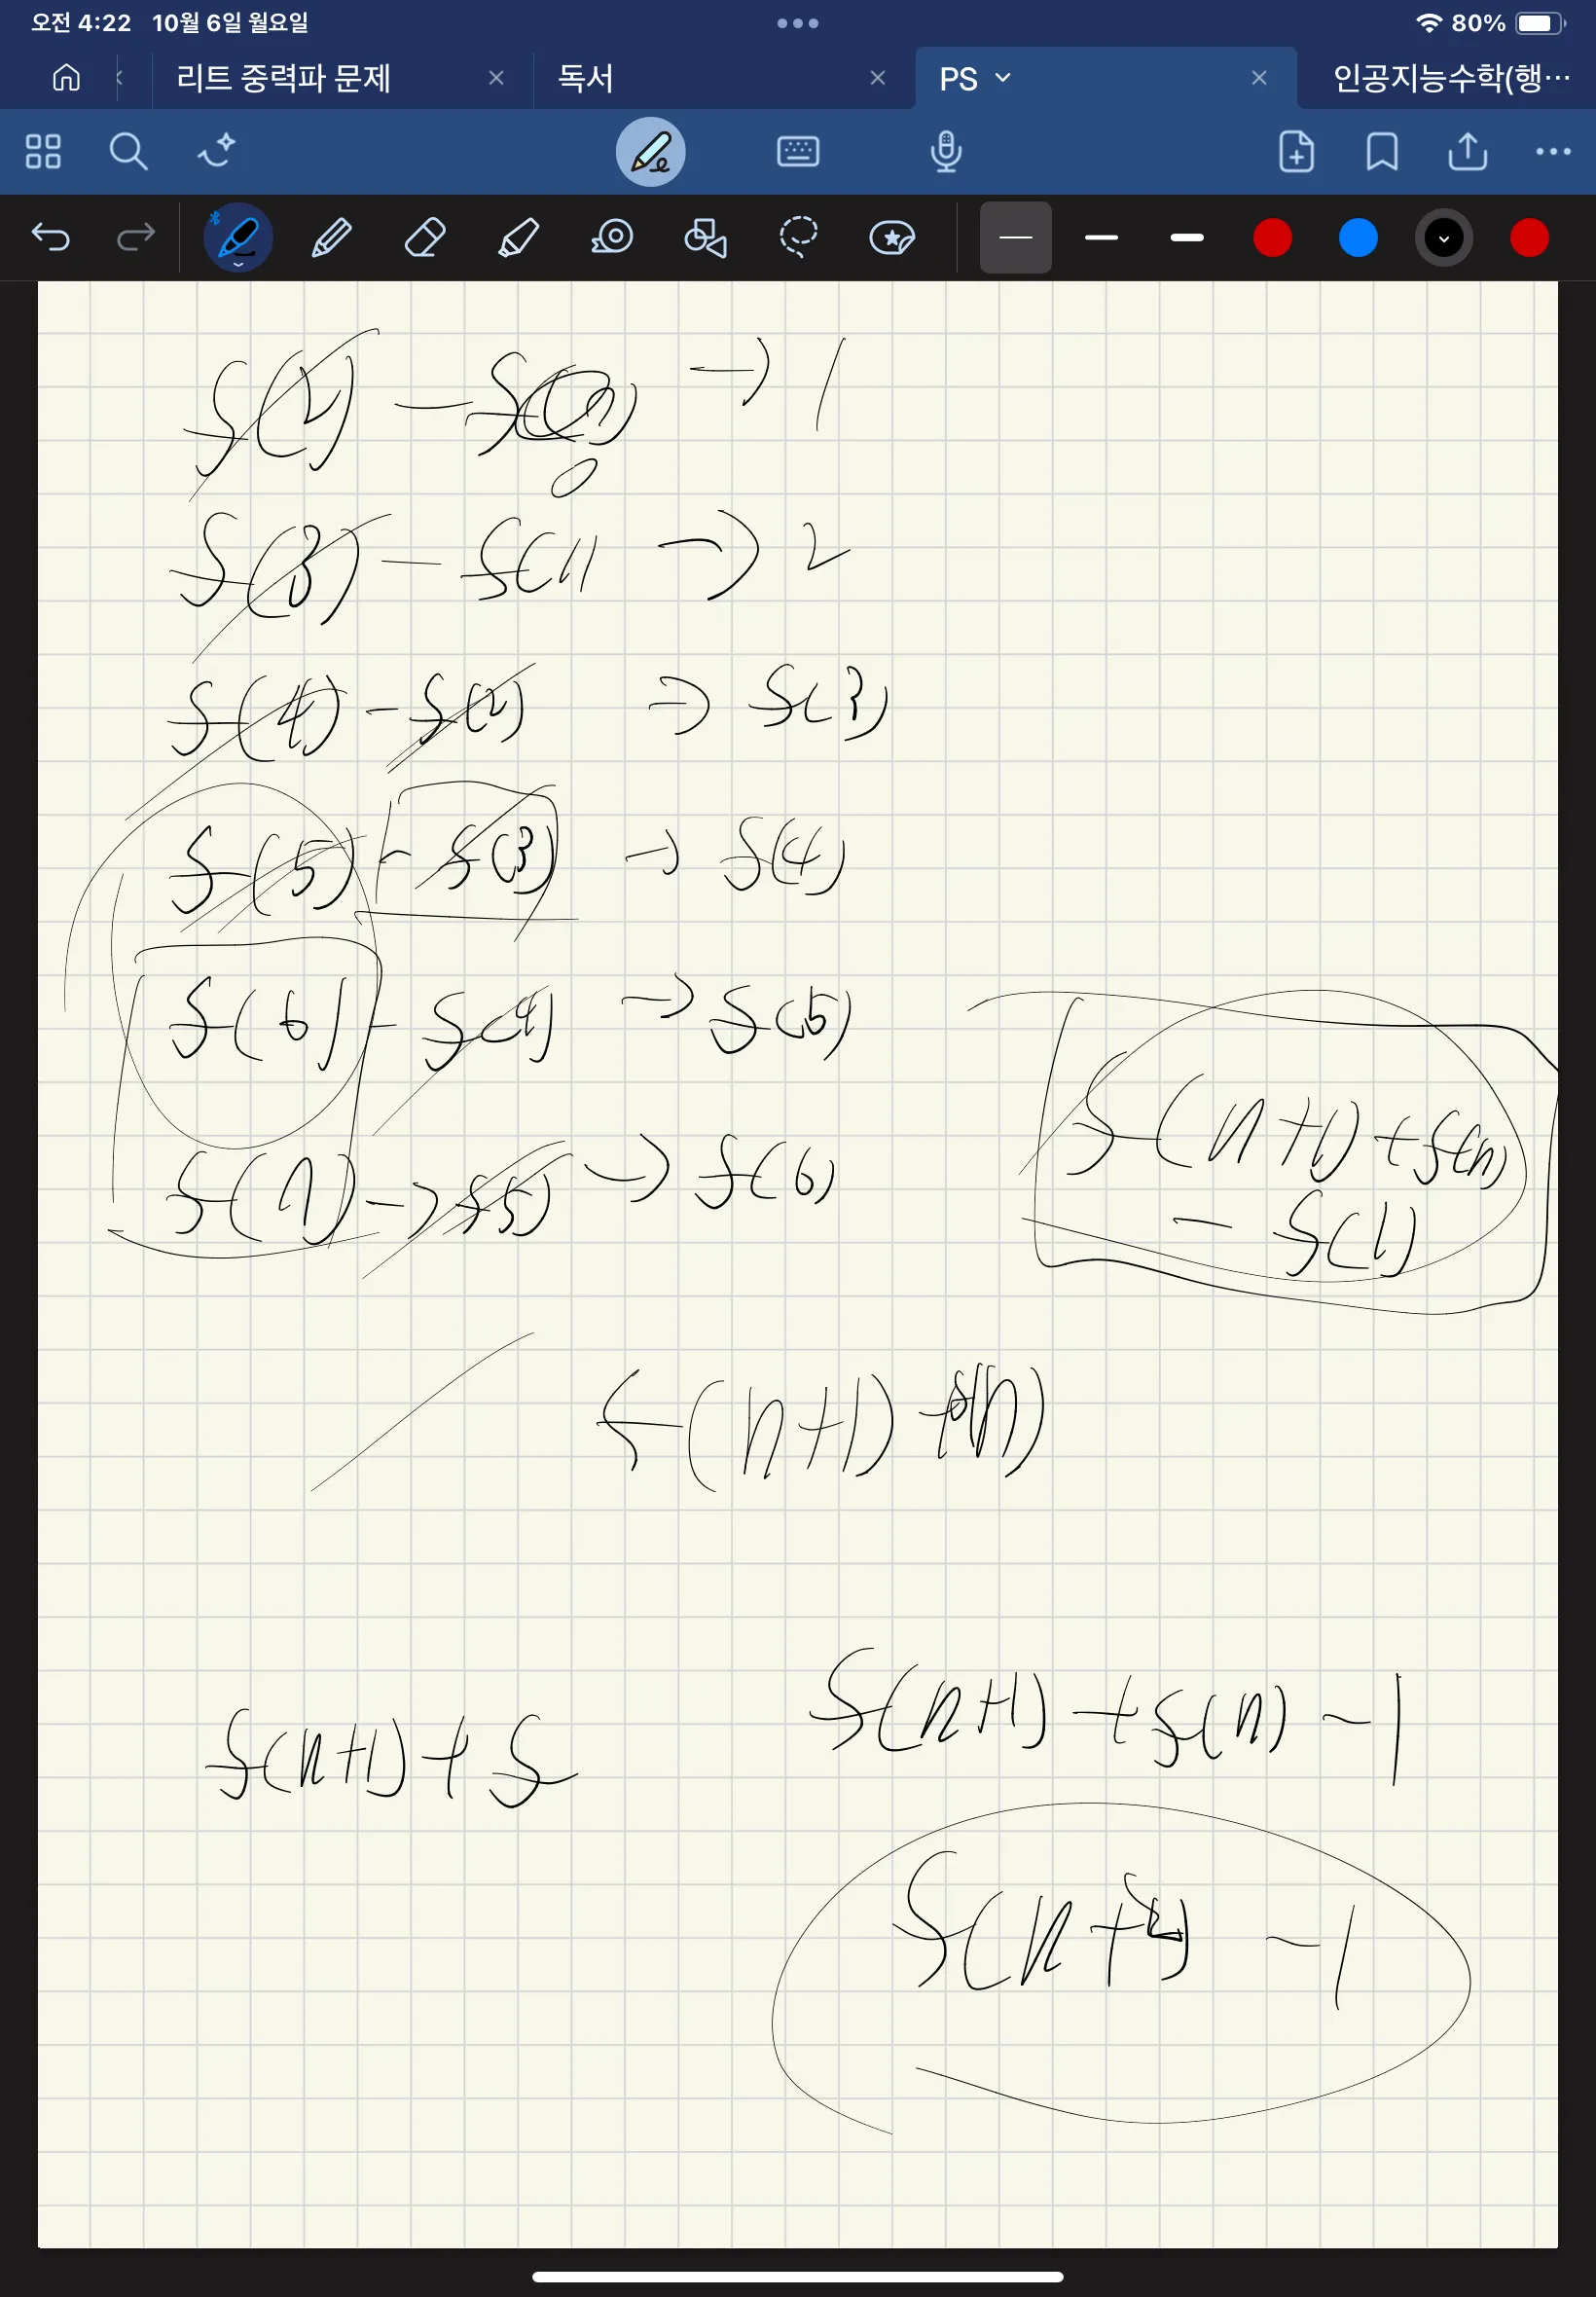 오전 4:22 10월 6일 월요일
80%
리트 중력파 문제
독서
PS
인공지능수학(행…
f(2) - f(0) → 1
0
f(3) - f(1) → 2
f(4) - f(2) → f(3)
f(5) - f(3) → f(4)
f(6) - f(4) → f(5)
f(7) → f(5) → f(6)
f(n+1) + f(n)
- f(1)
f(n+1) + f(n)
f(n+1) + f(n) - 1
f(n+1) + f
f(n+2) - 1